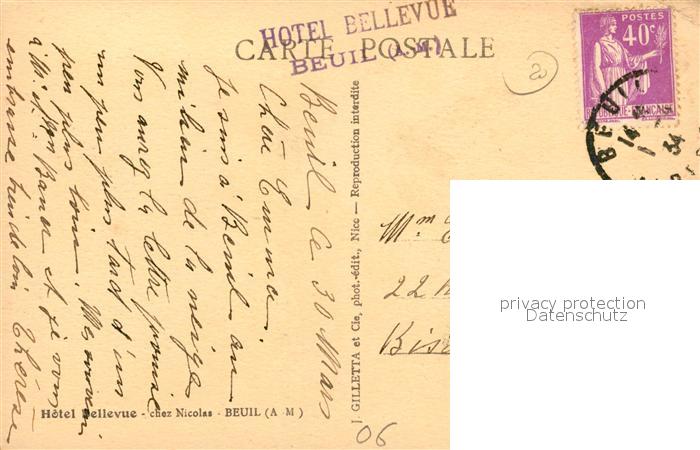 HOTEL BELLEVUE
BEUIL (A. M.)
CARTE POSTALE
POSTES
40c
REPUBLIQUE FRANÇAISE
BEUIL
14
1
34
20
Beuil le 30 Mars
Chère Emma.
Je suis à Beuil au
milieu de la neige
Vous aurez la lettre promise
un peu plus tard d'un
peu plus loin.
à Mr et Mme et je vous
embrasse de loin Thérèse
J. GILLETTA et Cie, phot.-édit., Nice — Reproduction interdite
Mme
22
Hôtel Bellevue - chez Nicolas - BEUIL (A M)
06
privacy protection
Datenschutz